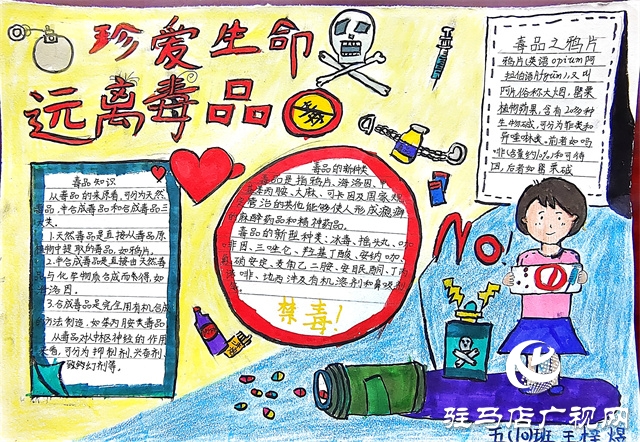 珍爱生命
远离毒品
毒品知识
从毒品的来源看，可分为天然
毒品，半合成毒品和合成毒品三
大类。
1.天然毒品是直接从毒品原
植物中提取的毒品，如鸦片。
2.半合成毒品是直接由天然毒
品与化学物质合成而来得，如
海洛因。
3.合成毒品是完全用有机合成
的方法制造，如苯丙胺类毒品
从毒品对人中枢神经的作用
来看，可分为抑制剂、兴奋剂、
致幻剂等。
毒品的新种类
毒品是指鸦片、海洛因、甲
基苯丙胺、大麻、可卡因及国家规
定管治的其他能够使人形成瘾癖
的麻醉药品和精神药品。
毒品的新型种类：冰毒、摇头丸、
啡因、三唑仑、羟基丁酸、安纳咖、
硝安定、麦角乙二胺、安眠酮、丁丙
诺啡、地西泮及有机溶剂和鼻吸剂
禁毒！
毒品之鸦片
鸦片(英语opium阿
拉伯语Afyūm)，又叫
阿片，俗称大烟，罂粟
植物蒴果，含有20多种
生物碱，可分为菲类和
异喹啉类。前者如吗
啡(含量约10%)和可待
因，后者如罂粟碱
No!
驻马店广视网
五(10)班 王梓煜